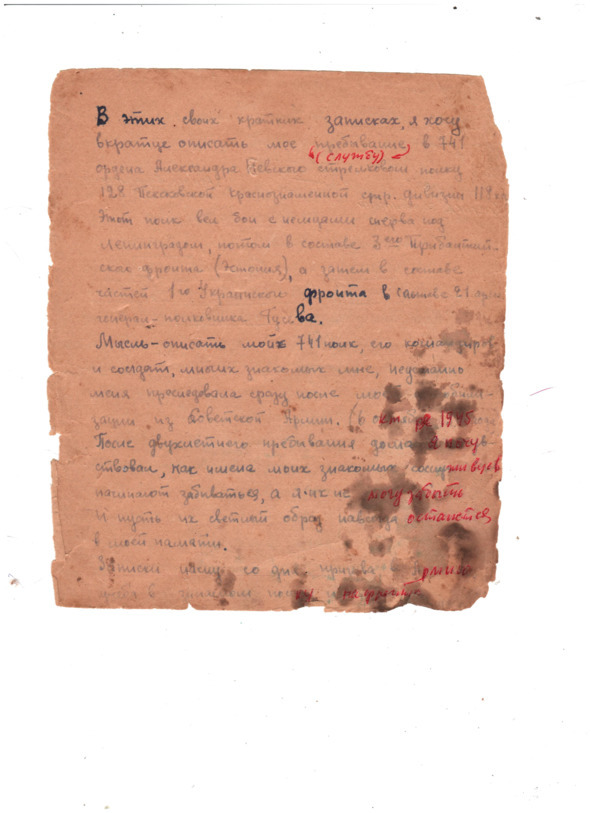 В этих своих кратких записках, я хочу
вкратце описать мое пребывание в 741
(службу)
ордена Александра Невского стрелковом полку
128 Псковской краснознаменной стр. дивизии 118
Этот полк вел бои с немцами сперва под
Ленинградом, потом в составе 3его Прибалтий-
ского фронта (Эстония), а затем в составе
частей 1го Украинского фронта в составе 21 армии
генерал-полковника Гусева.
Мысль-описать мой 741 полк, его командиров
и солдат, многих знакомых мне, неустанно
меня преследовала сразу после моей
зации из Советской Армии. (в октябре 1945
После двухлетнего пребывания дома я почув
ствовал, как имена моих знакомых сослуживцев
начинают забываться, а я их не могу забыть
И пусть их светлый образ навсегда останется
в моей памяти.
Записки пишу со дня призыва в Армию